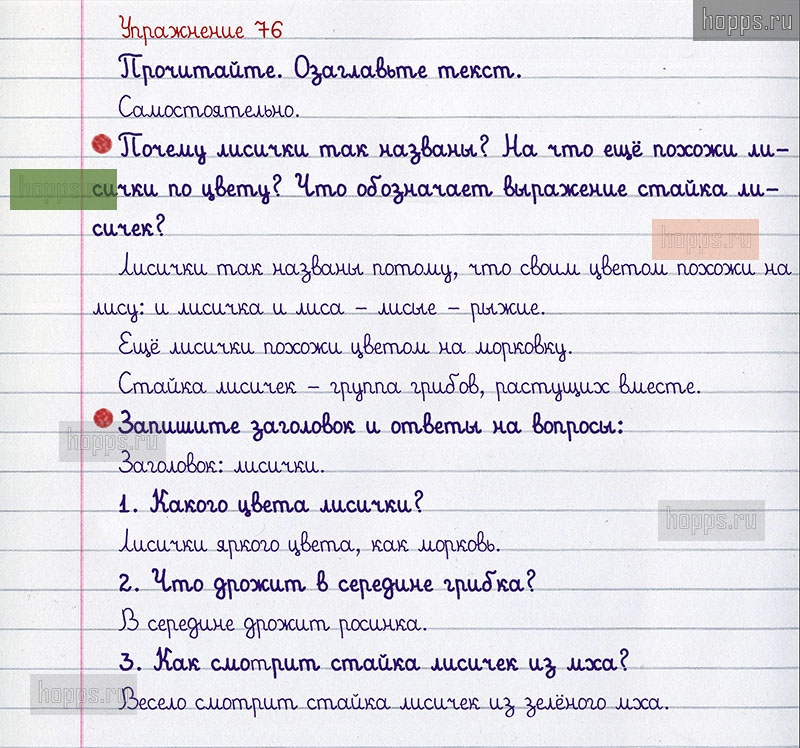 hopps.ru
Упражнение 76
Прочитайте. Озаглавьте текст.
Самостоятельно.
Почему лисички так названы? На что ещё похожи ли-
hopps.ru
сички по цвету? Что обозначает выражение стайка ли-
сичек?
hopps.ru
Лисички так названы потому, что своим цветом похожи на
лису: и лисичка и лиса – лисые – рыжие.
Ещё лисички похожи цветом на морковку.
Стайка лисичек – группа грибов, растущих вместе.
Запишите заголовок и ответы на вопросы:
hopps.ru
Заголовок: лисички.
1. Какого цвета лисички?
hopps.ru
Лисички яркого цвета, как морковь.
2. Что дрожит в середине грибка?
В середине дрожит росинка.
3. Как смотрит стайка лисичек из мха?
hopps.ru
Весело смотрит стайка лисичек из зелёного мха.